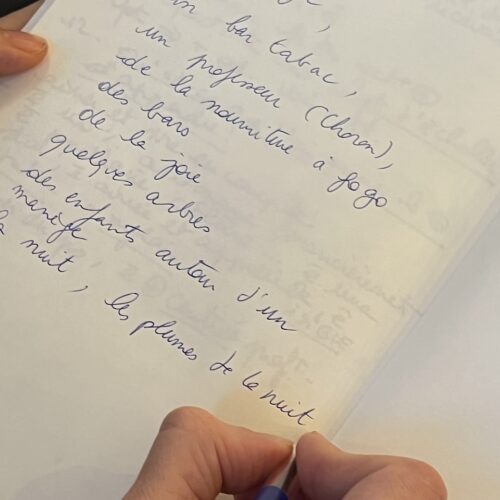 un bar tabac,
un professeur (Choron),
de la nourriture à gogo
des bars
de la joie
quelques arbres
des enfants autour d'un
manège
la nuit, les plumes de la nuit